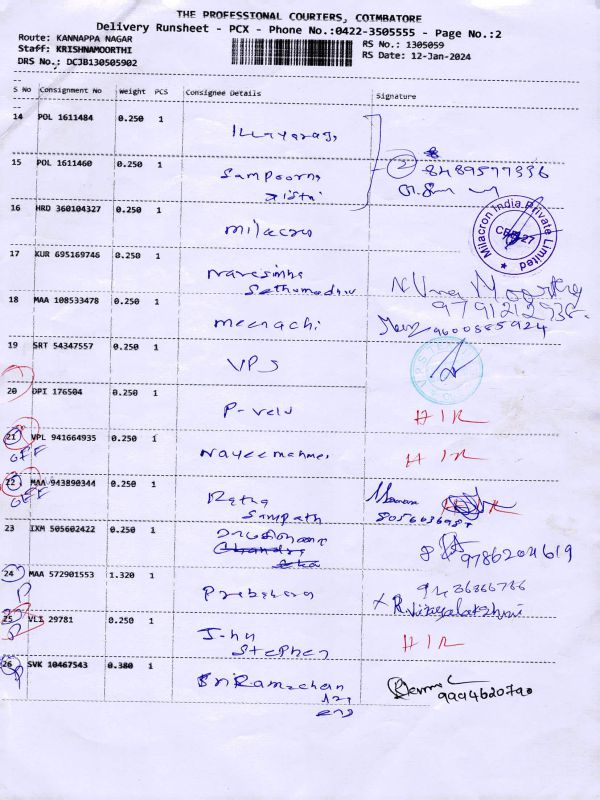 THE PROFESSIONAL COURIERS, COIMBATORE
Delivery Runsheet - PCX - Phone No.:0422-3505555 - Page No.:2
Route: KANNAPPA NAGAR
Staff: KRISHNAMOORTHI
DRS No.: DCJB130505902
RS No.: 1305059
RS Date: 12-Jan-2024
S No Consignment No Weight PCS Consignee Details Signature
14 POL 1611484 0.250 1
15 POL 1611460 0.250 1 Sampoorna
2 8489577336
16 HRD 360104327 0.250 1 milacro
Milacron India Private Limited
17 KUR 695169746 0.250 1 Narasimha
9791212938
18 MAA 108533478 0.250 1 meenachi
9600885924
19 SRT 54347557 0.250 1 VPS
V.P.S
20 DPI 176504 0.250 1 P-velu HIR
21 VPL 941664935 0.250 1 HIR
OFF
22 MAA 943890344 0.250 1 Ratha
OFF Sampath
23 IXM 505602422 0.250 1
Chandra
9786204619
24 MAA 572901553 1.320 1 Prabakaran
P R.Vijayalakshmi
25 VLI 29781 0.250 1 John
P Stephen HIR
26 SVK 10467543 0.380 1 SriRamachan
P 9994620790